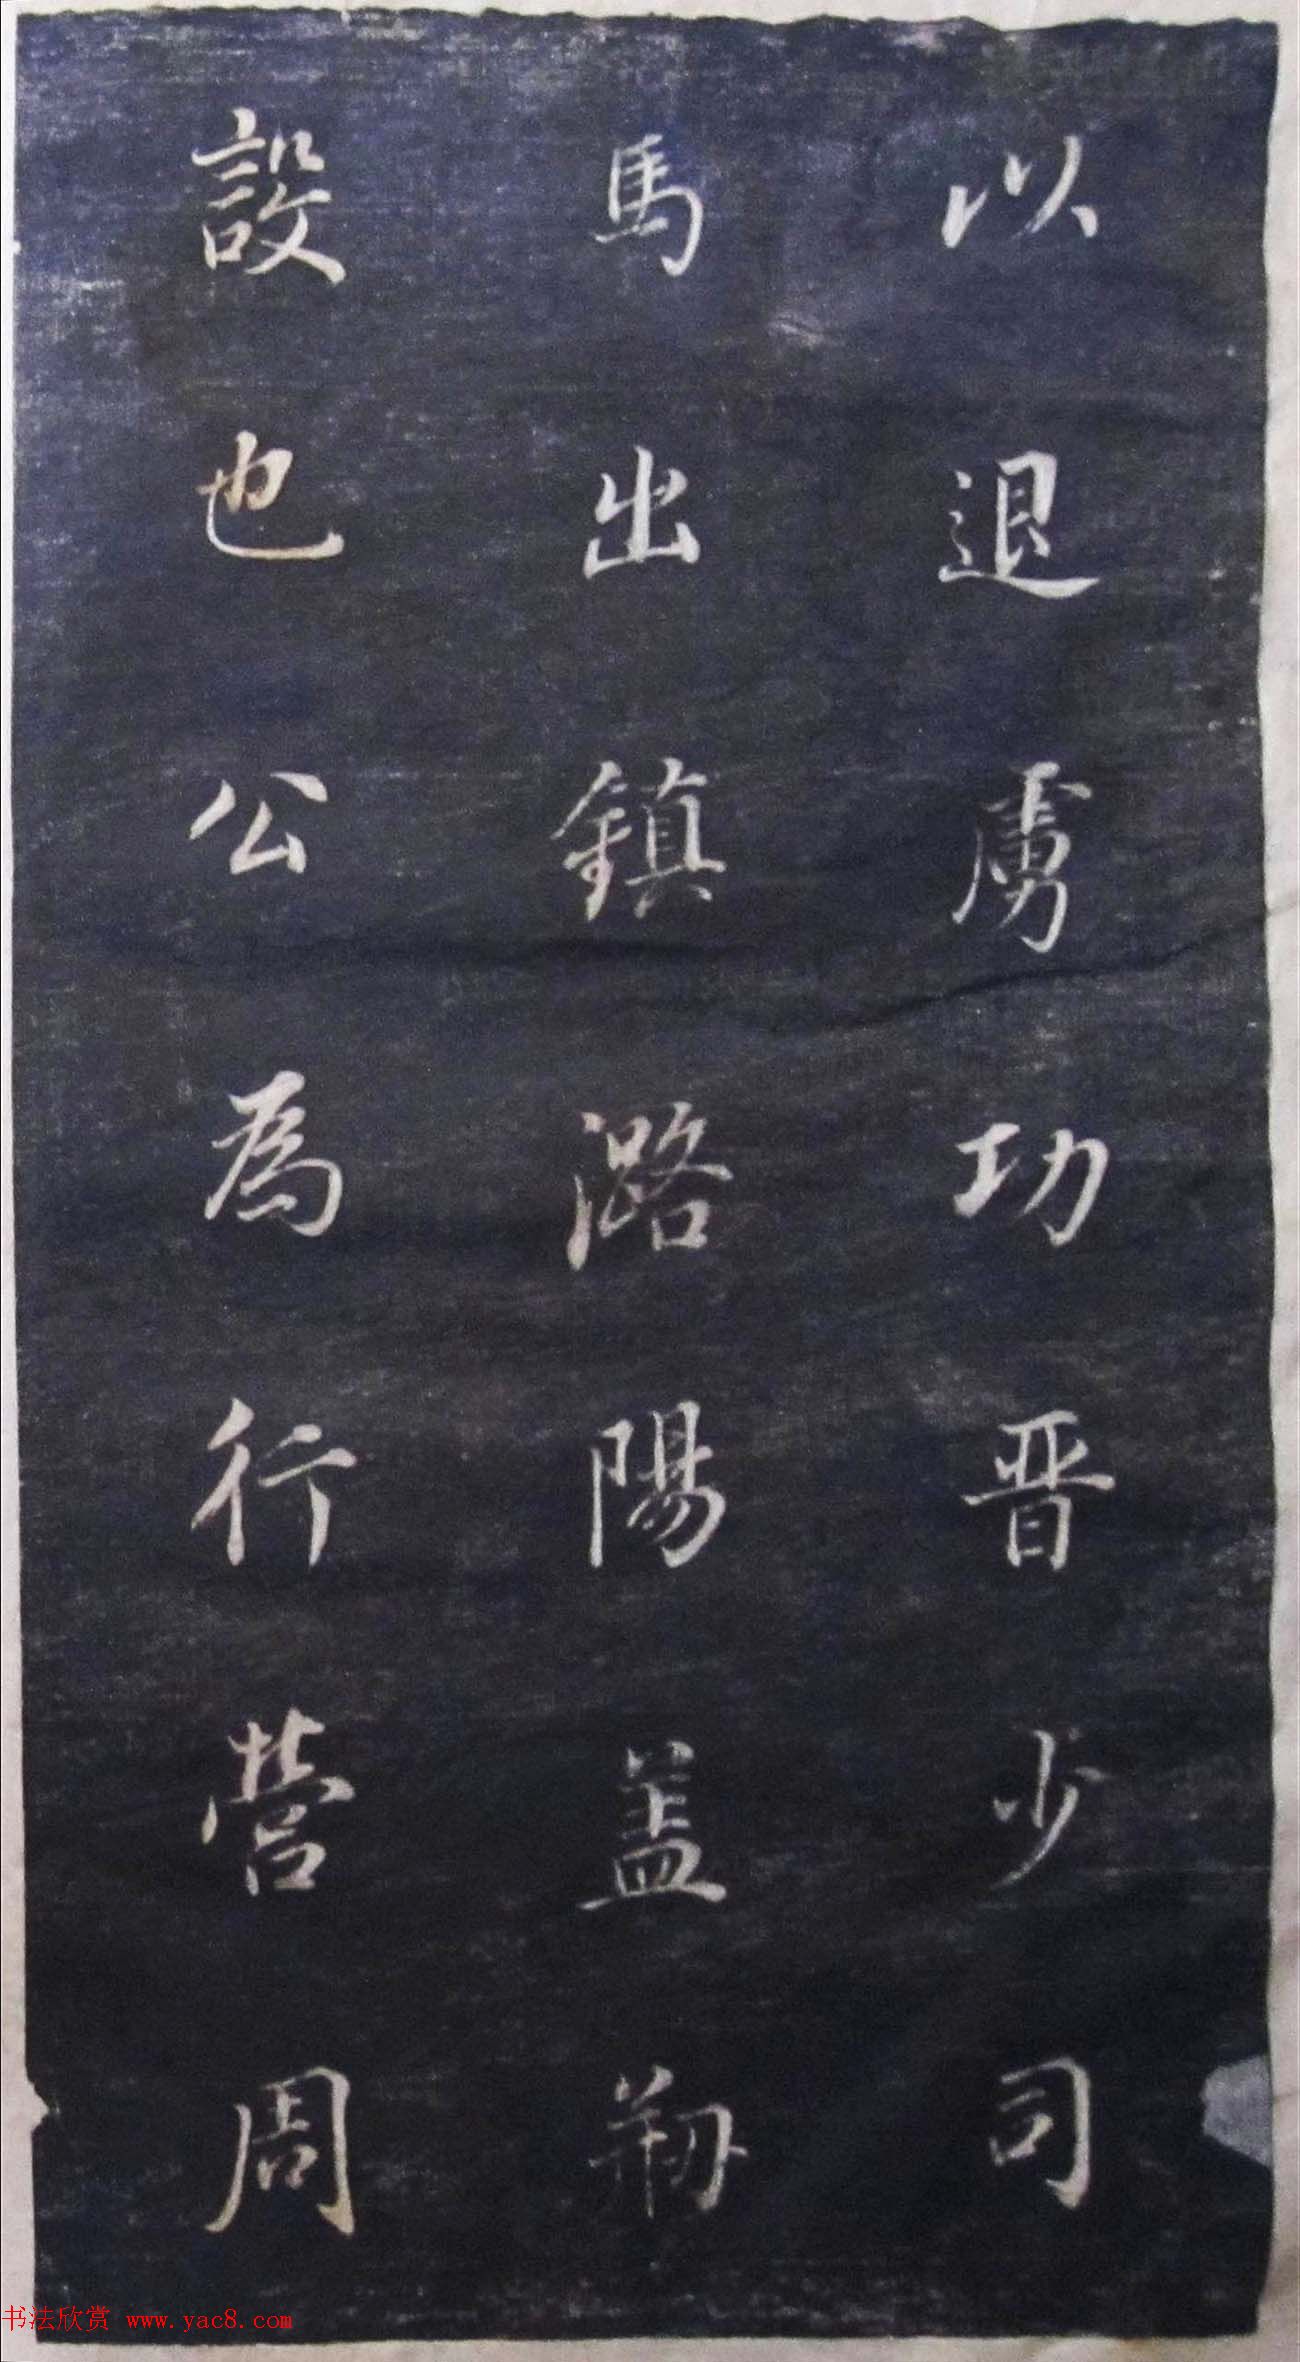 以退虜功晋少司
馬出鎮潞陽盖剏
設也公為行營周
书法欣赏 www.yac8.com